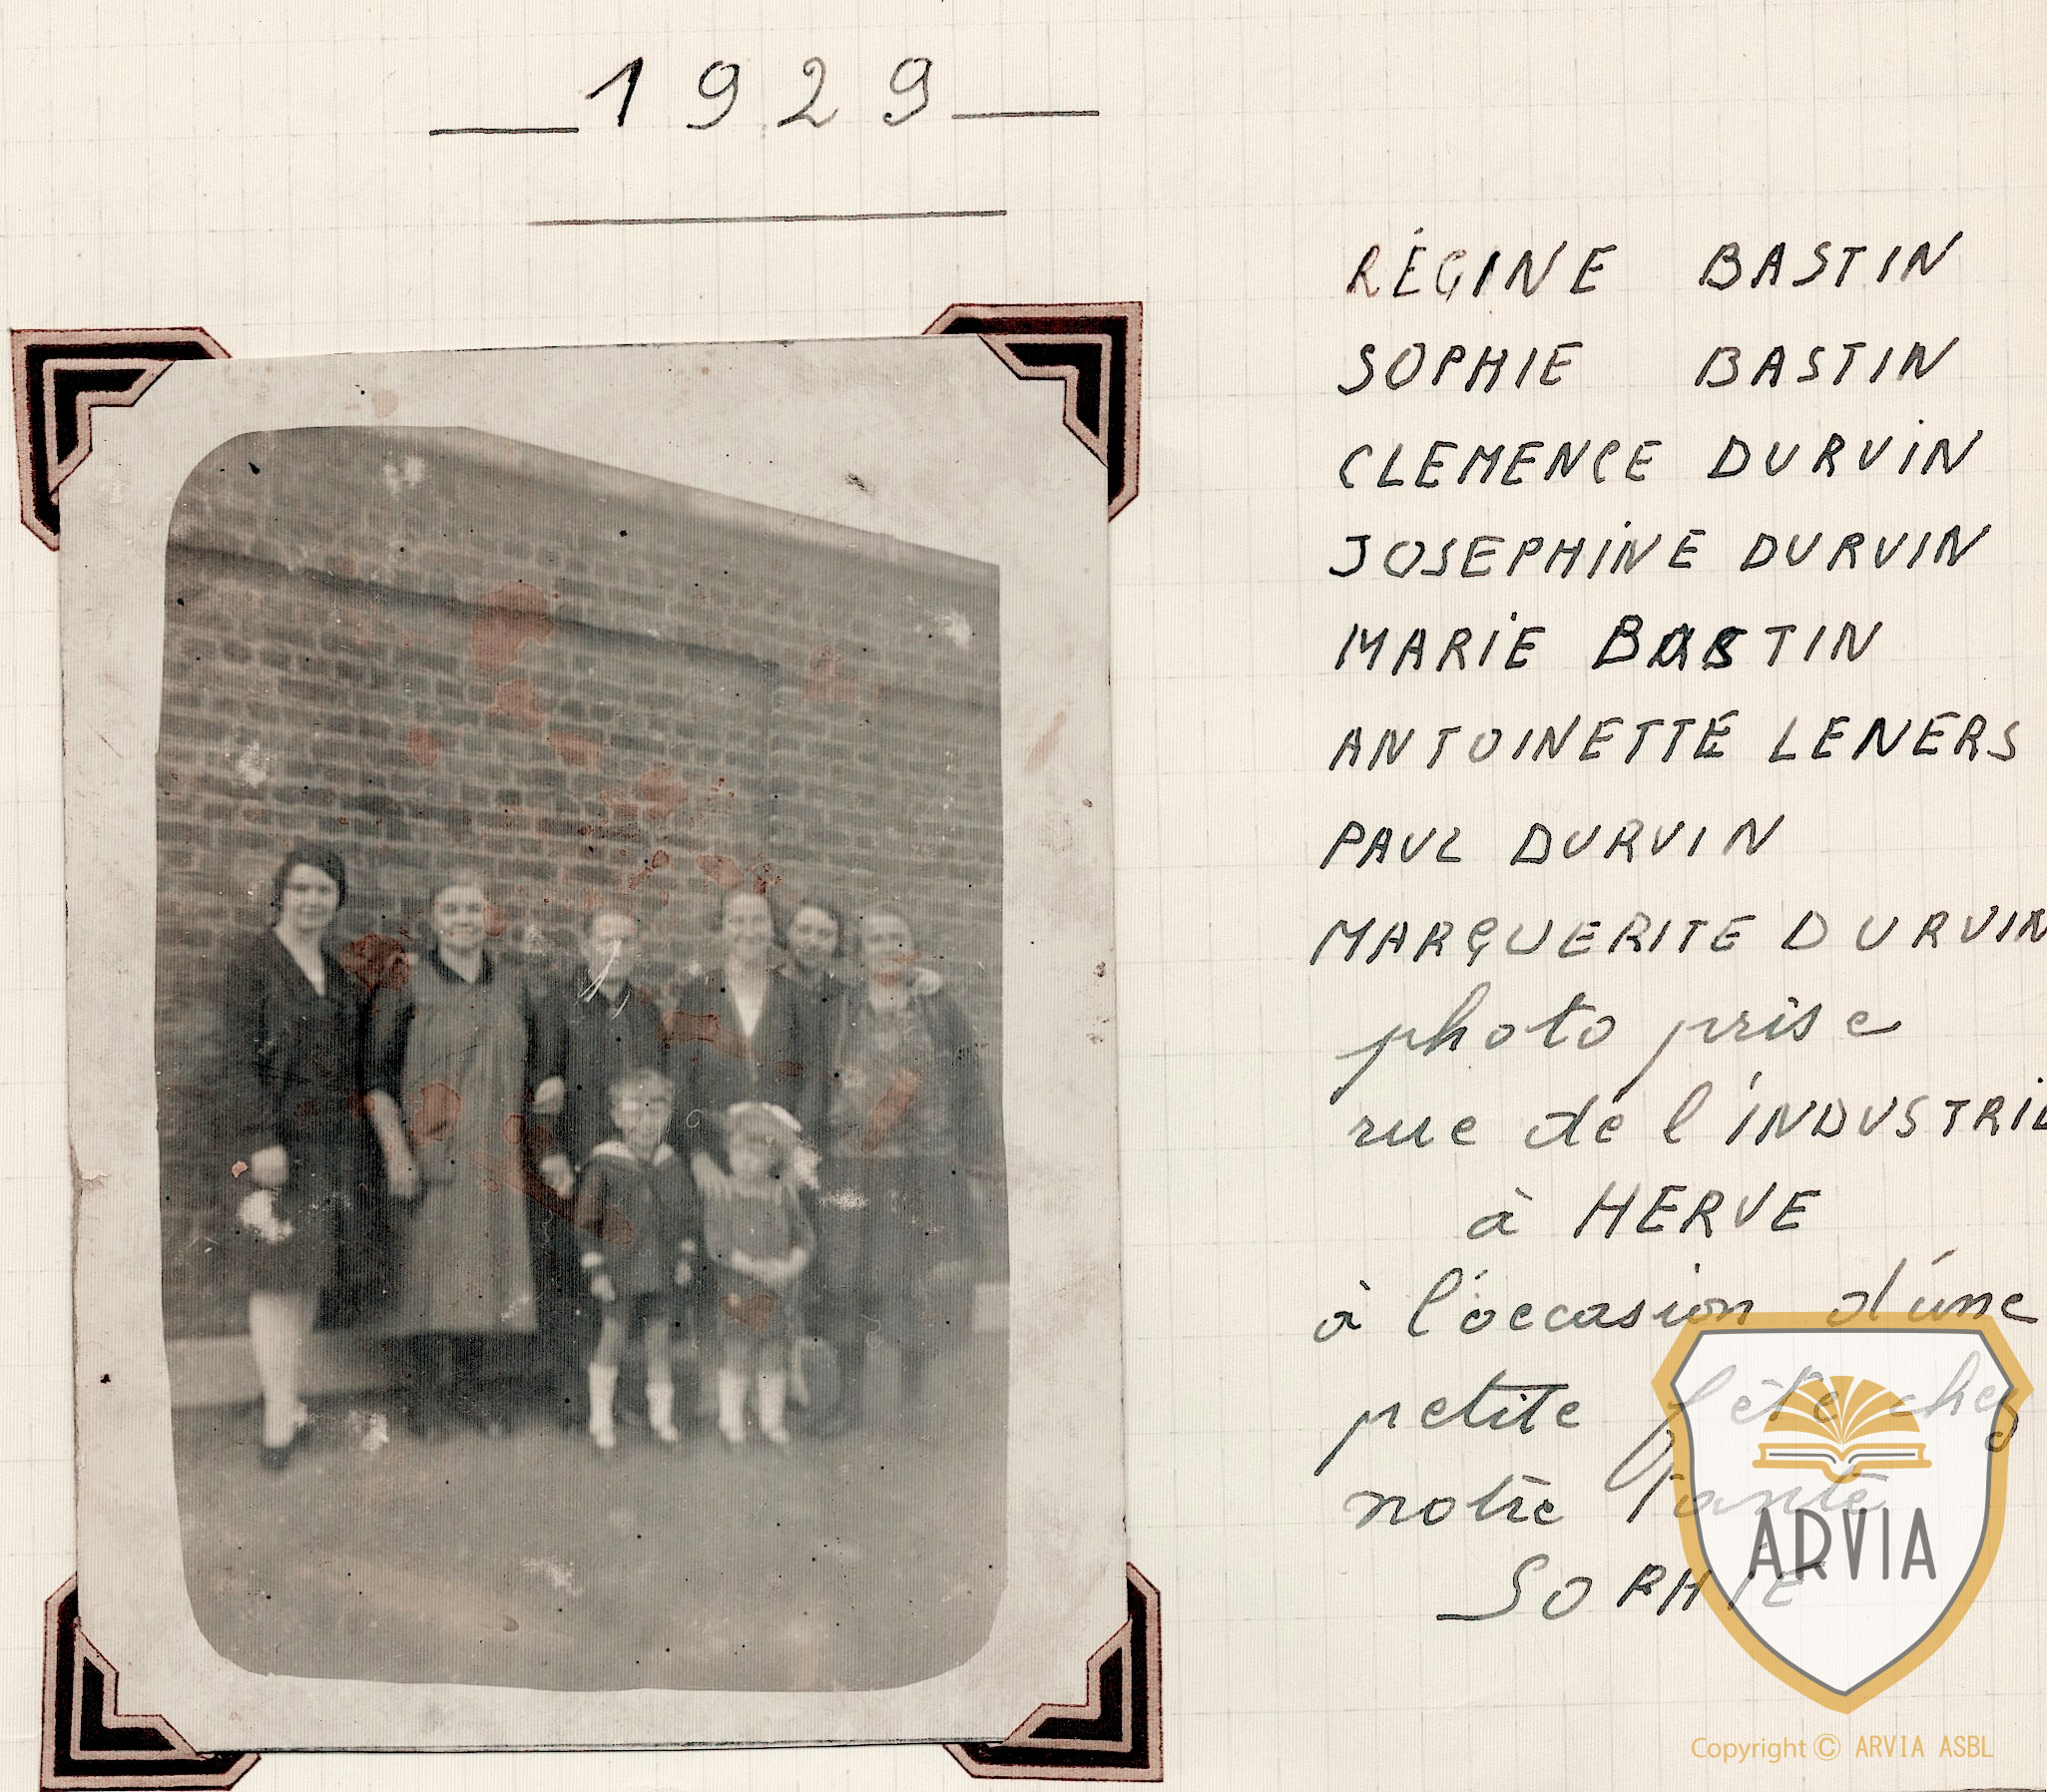 1929
RÉGINE BASTIN
SOPHIE BASTIN
CLEMENCE DURVIN
JOSEPHINE DURVIN
MARIE BASTIN
ANTOINETTE LENERS
PAUL DURVIN
MARGUERITE DURVIN
photo prise
rue de l'INDUSTRIE
à HERVE
à l'occasion d'une
petite fête chez
notre Tante
SOPHIE
ARVIA
Copyright © ARVIA ASBL